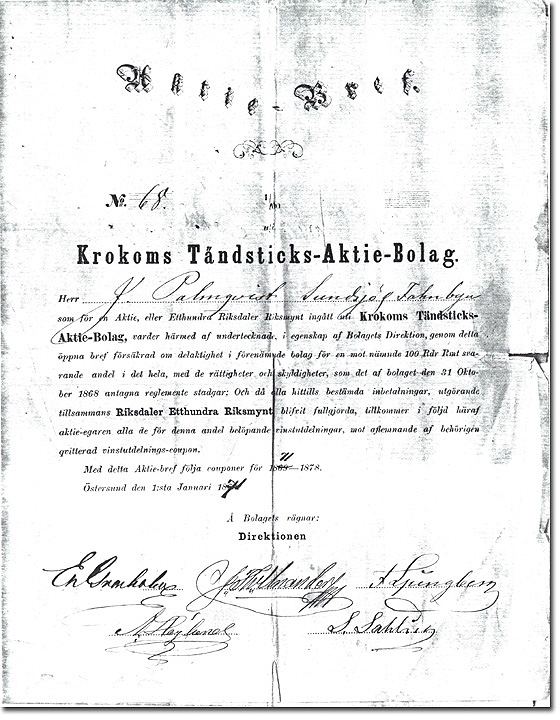 Aktie-Bref.
No. 68.
uti
Krokoms Tändsticks-Aktie-Bolag.
Herr J. Palmqvist Sundsjö, Fahnbyn
som för en Aktie, eller Etthundra Riksdaler Riksmynt ingått uti Krokoms Tändsticks-
Aktie-Bolag, varder härmed af undertecknade, i egenskap af Bolagets Direktion, genom detta
öppna bref försäkrad om delaktighet i förenämde bolag för en mot nämnde 100 Rdr Rmt sva-
rande andel i det hela, med de rättigheter och skyldigheter, som det af bolaget den 31 Okto-
ber 1868 antagna reglemente stadgar; Och då alla hittills bestämda inbetalningar, utgörande
tillsammans Riksdaler Etthundra Riksmynt blifvit fullgjorda, tillkommer i följd häraf
aktie-egaren alla de för denna andel belöpande vinstutdelningar, mot aflemnande af behörigen
qvitterad vinstutdelnings-coupon.
Med detta Aktie-bref följa couponer för 1871 1878.
Östersund den 1:sta Januari 1871
Å Bolagets vägnar:
Direktionen
A Ljungberg
S. Sahlin